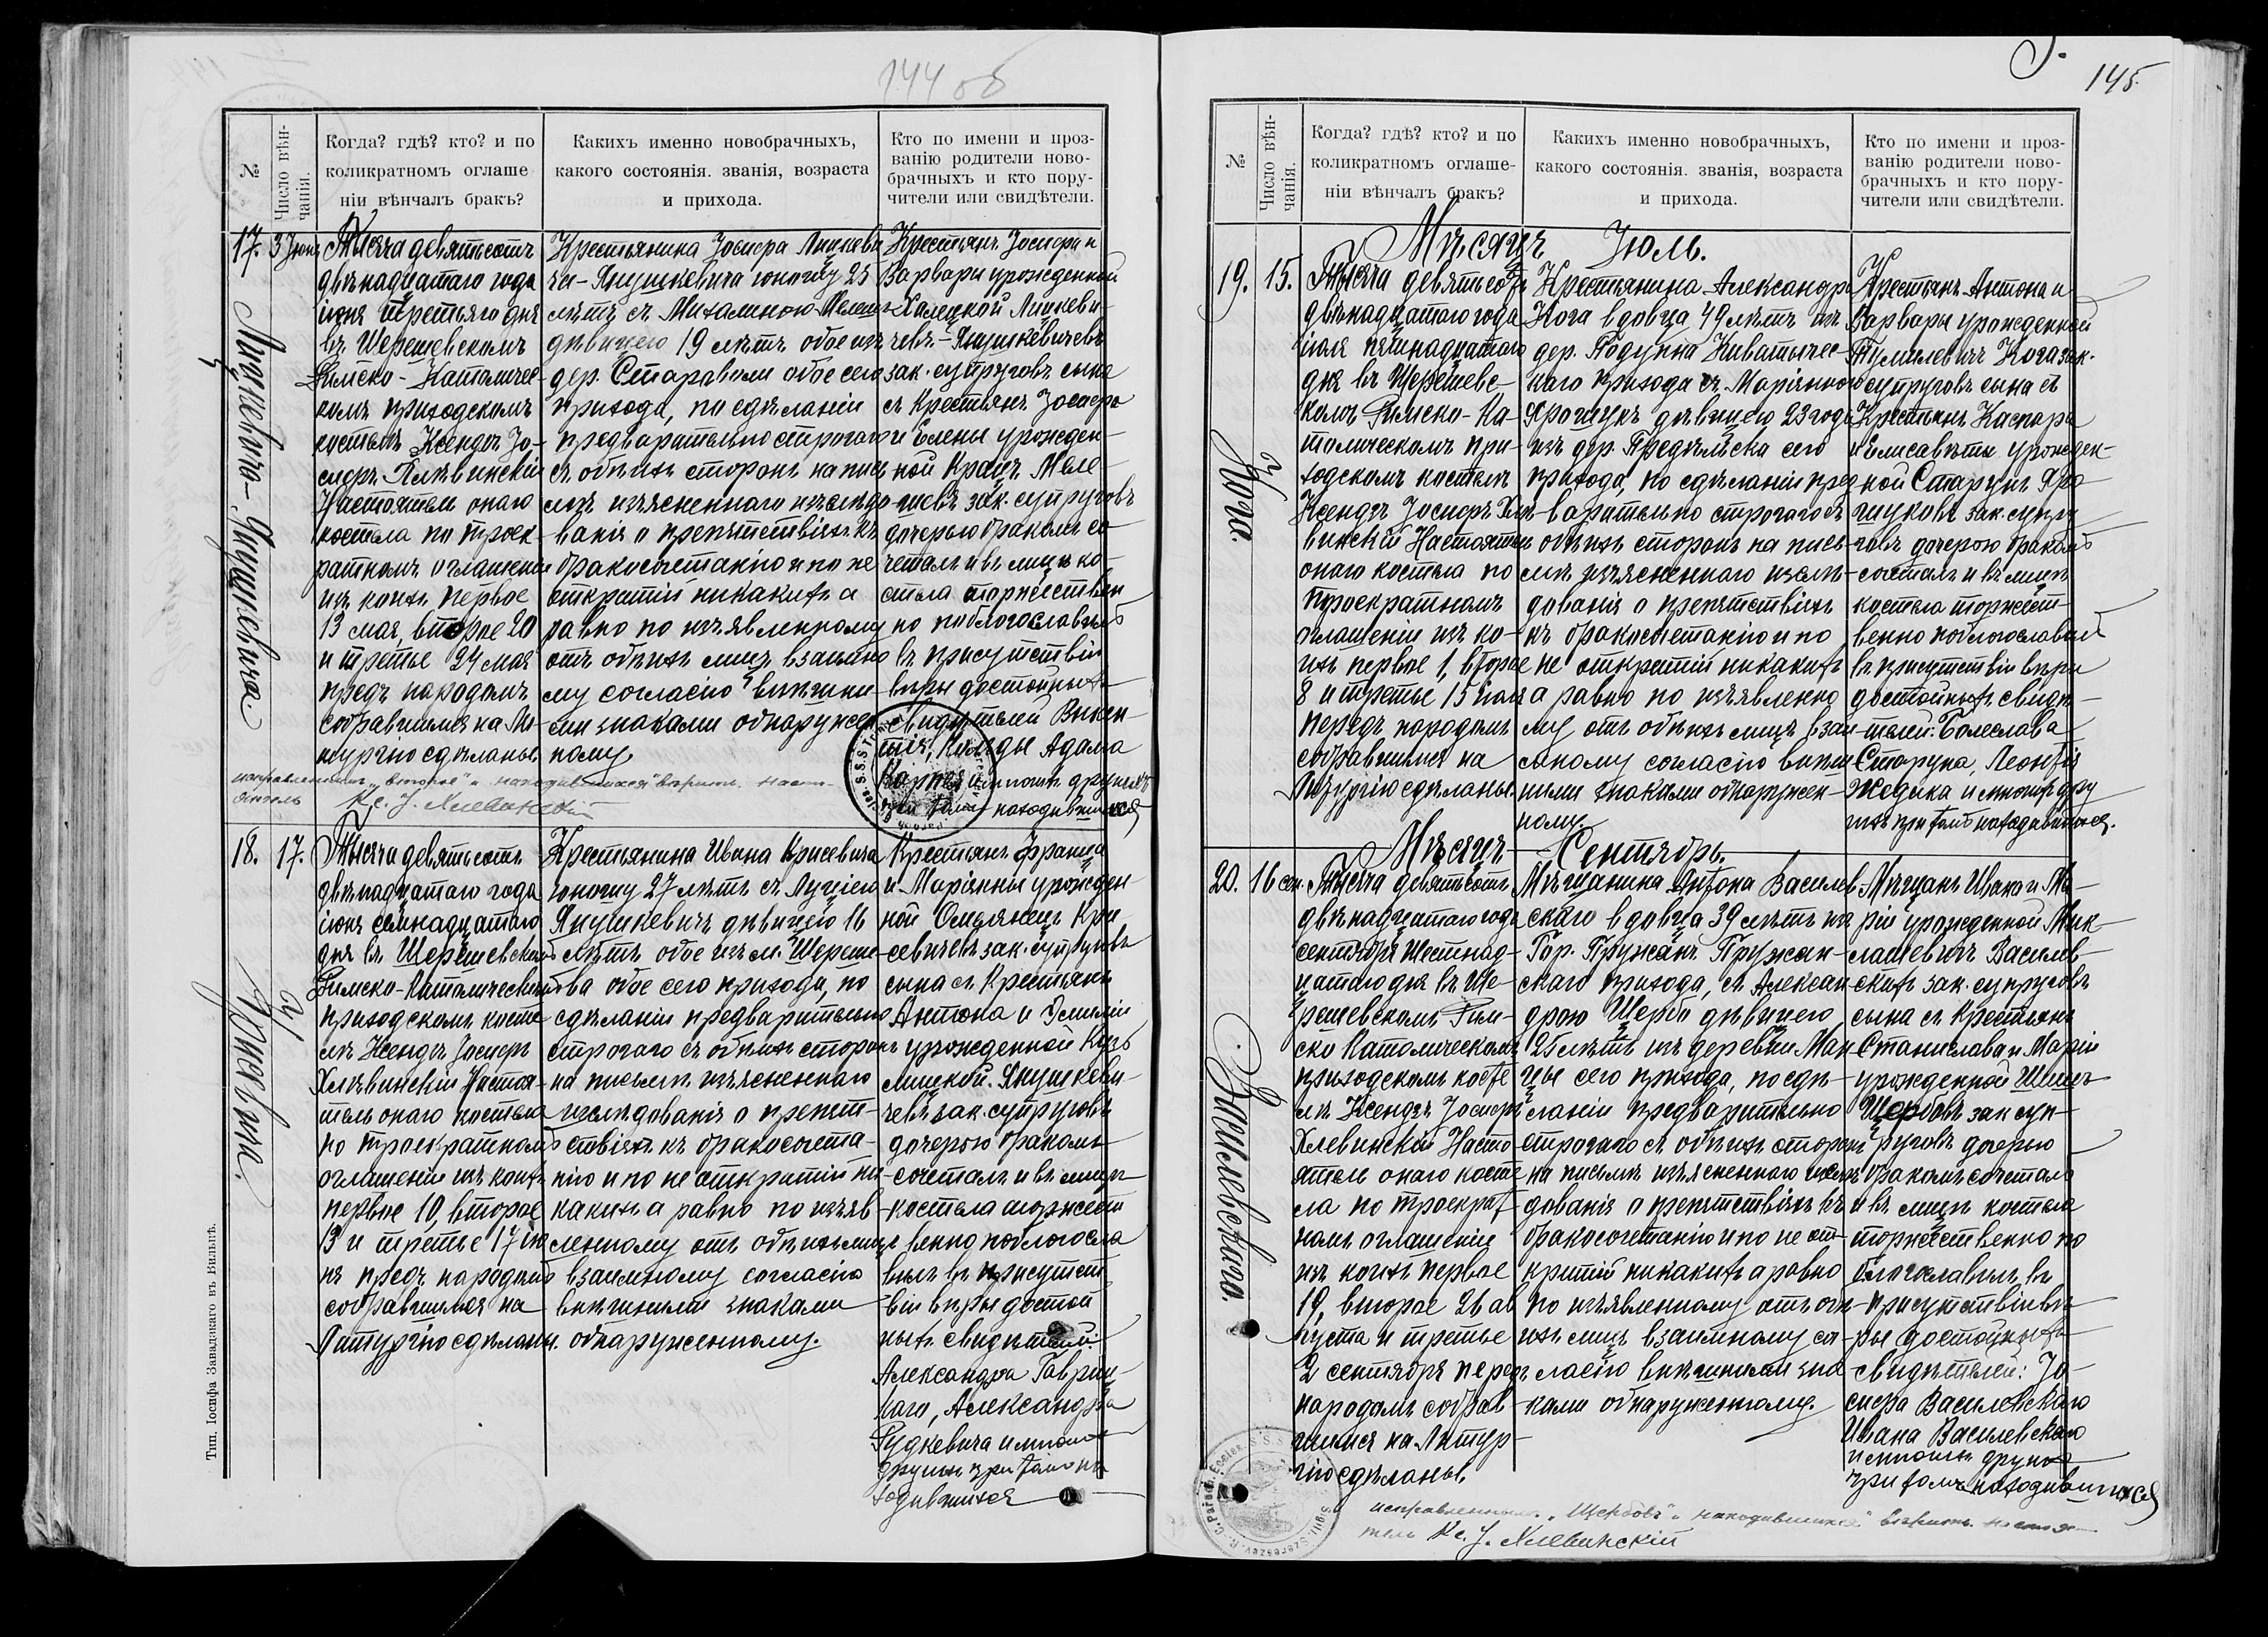 144 об
№
Число вѣн-
чанія.
Когда? гдѣ? кто? и по
коликратномъ оглаше
ніи вѣнчалъ бракъ?
Какихъ именно новобрачныхъ,
какого состоянія. званія, возраста
и прихода.
Кто по имени и проз-
ванію родители ново-
брачныхъ и кто пору-
чители или свидѣтели.
17.
3 Іюня
Лицкевича-Янушкевича.
Тысяча девятьсотъ
двѣнадцатаго года
іюня третьяго дня
въ Шерешевскомъ
Римско-Католичес-
комъ приходскомъ
костелѣ Ксендзъ Іо-
сифъ Хлѣвинскій
Настоятель онаго
костела по троек
ратномъ оглашеніи
изъ коихъ первое
13 мая, второе 20
и третье 24 мая
предъ народомъ
собравшимся на Ли-
тургію сдѣланы.
Крестьянина Іосифа Лицкеви
ча-Янушкевича юношу 25
лѣтъ съ Михалиною Мелешъ
дѣвицею 19 лѣтъ обое изъ
дер. Старавoли обое сего
прихода, по сдѣланіи
предварительно строгаго
съ обѣихъ сторонъ на пись
мѣ изъясненнаго изслѣдо
ванія о препятствіяхъ къ
бракосочетанію и по не
открытіи никакихъ а
равно по изъявленному
отъ обѣихъ лицъ взаимно
му согласію внѣшни
ми знаками обнаружен
ному
Крестьянъ Іосифа и
Варвары урожденной
Халецкой Лицкеви-
чевъ-Янушкевичевъ
зак. супруговъ сына
съ Крестьянъ Іосифа
и Елены урожден-
ной Крацъ Меле-
шевъ зак. супруговъ
дочерью бракомъ со
четалъ и въ лицѣ ко-
стела торжествен
но поблагославилъ
въ присутствіи
вѣры достойныхъ
свидѣтелей Викен
тія Коляды Адама
и многихъ другихъ
при томъ находившихся
исправленнымъ „второе" и „находившихся" вѣрить. Наст-
оятель Кс. І. Хлевинскій
18.
17.
Крисевича.
Тысяча девятьсотъ
двѣнадцатаго года
іюня семнадцатаго
дня въ Шерешевскомъ
Римско-Католическомъ
приходскомъ косте
лѣ Ксендзъ Іосифъ
Хлѣвинскій Настоя-
тель онаго костела
по троекратномъ
оглашеніи изъ коихъ
первое 10, второе
13 и третье 17 ію
ня предъ народомъ
собравшимся на
Литургію сдѣланы.
Крестьянина Ивана Крисевича
юношу 27 лѣтъ съ Луціею
Янушкевичъ дѣвицею 16
лѣтъ обое изъ м. Шереше
ва обое сего прихода, по
сдѣланіи предварительно
строгаго съ обѣихъ сторонъ
на письмѣ изъясненнаго
изслѣдованія о препят-
ствіяхъ къ бракосочета-
нію и по не открытіи ни
какихъ а равно по изъяв
ленному отъ обѣихъ лицъ
взаимному согласію
внѣшними знаками
обнаруженному.
Крестьянъ Франца
и Маріянны урожден
ной Омелянецъ Кри
севичевъ зак. супруговъ
сына съ Крестьянъ
Антона и Эмиліи
урожденной
Янушкеви
чевъ зак. супруговъ
дочерою бракомъ
сочеталъ и въ лицѣ
костела торжест
венно поблагосла
вилъ въ присутст
віи вѣры достой
ныхъ свидѣтелей:
Александра Гаврил-
каго, Александра
Рудкевича и многихъ
другихъ при томъ на
ходившихся
Тип. Іосифа Завадзкаго въ Вильнѣ.
145.
№
Число вѣн-
чанія.
Когда? гдѣ? кто? и по
коликратномъ оглаше-
ніи вѣнчалъ бракъ?
Какихъ именно новобрачныхъ,
какого состоянія. званія, возраста
и прихода.
Кто по имени и проз-
ванію родители ново-
брачныхъ и кто пору-
чители или свидѣтели.
Мѣсяцъ Іюль.
19.
15.
Кога.
Тысяча девятьсотъ
двѣнадцатаго года
іюля пятнадцатаго
дня въ Шерешевс-
комъ Римско-Ка-
толическомъ при-
ходскомъ костелѣ
Ксендзъ Іосифъ Хлѣ-
винскій Настоятель
онаго костела по
троекратномъ
оглашеніи изъ ко-
ихъ первое 1, второе
8 и третье 15 іюля
передъ народомъ
собравшимся на
Литургію сдѣланы.
Крестьянина Александра
Кога вдовца 49 лѣтъ изъ
дер. Подупна Киватычес-
каго прихода съ Маріянною
Ярошукъ дѣвицею 23 года
изъ дер. Предѣльска сего
прихода, по сдѣланіи пред
варительно строгаго съ
обѣихъ сторонъ на пись-
мѣ изъясненнаго изслѣ-
дованія о препятствіяхъ
къ бракосочетанію и по
не открытіи никакихъ
а равно по изъявленно
му отъ обѣихъ лицъ взаи
мному согласію внѣш
ними знаками обнаружен-
ному.
Крестьянъ Антона и
Варвары урожденной
Тумилевичъ Кога зак.
супруговъ сына съ
Крестьянъ Каспара
и Елисаветы урожден-
ной Старунъ Яро
шуковъ зак. супру
говъ дочерою бракомъ
сочеталъ и въ лицѣ
костела торжест-
венно поблагославилъ
въ присутствіи вѣры
достойныхъ свидѣ-
телей: Болеслава
Старуна, Леонтія
Жедика и многихъ дру
гихъ при томъ находившихся.
Мѣсяцъ Сентябрь.
20.
16 сен.
Василевскаго.
Тысяча девятьсотъ
двѣнадцатаго года
сентября шестнад-
цатаго дня въ Ше-
решевскомъ Рим-
ско Католическомъ
приходскомъ косте
лѣ Ксендзъ Іосифъ
Хлевинскій Насто-
ятель онаго косте
ла по троекрат-
номъ оглашеніи
изъ коихъ первое
19, второе 26 ав
густа и третье
2 сентября передъ
народомъ собрав-
шимся на Литур-
гію сдѣланы.
Мѣщанина Антона Василев
скаго вдовца 39 лѣтъ изъ
Гор. Пружанъ Пружан-
скаго прихода, съ Алексан
дрою Щерба дѣвицею
25 лѣтъ изъ деревни Ман
цы сего прихода, по сдѣ-
ланіи предварительно
строгаго съ обѣихъ сторонъ
на письмѣ изъясненнаго изслѣ
дованія о препятствіяхъ къ
бракосочетанію и по не от-
крытіи никакихъ а равно
по изъявленному отъ обѣ-
ихъ лицъ взаимному со-
гласію внѣшними зна
ками обнаруженному.
Мѣщанъ Ивана и Ма-
ріи урожденной Мик-
лашевичъ Василев-
скихъ зак. супруговъ
сына съ Крестьянъ
Станислава и Маріи
урожденной
Щербовъ зак. суп-
руговъ дочерью
бракомъ сочеталъ
и въ лицѣ костела
торжественно по
благославилъ въ
присутствіи вѣ-
ры достойныхъ
свидѣтелей: Іо-
сифа Василевскаго
Ивана Василевскаго
и многихъ другихъ
при томъ находившихся
исправленнымъ „Щербовъ" и „находившихся" вѣрить. Настоя-
тель Кс. І. Хлевинскій